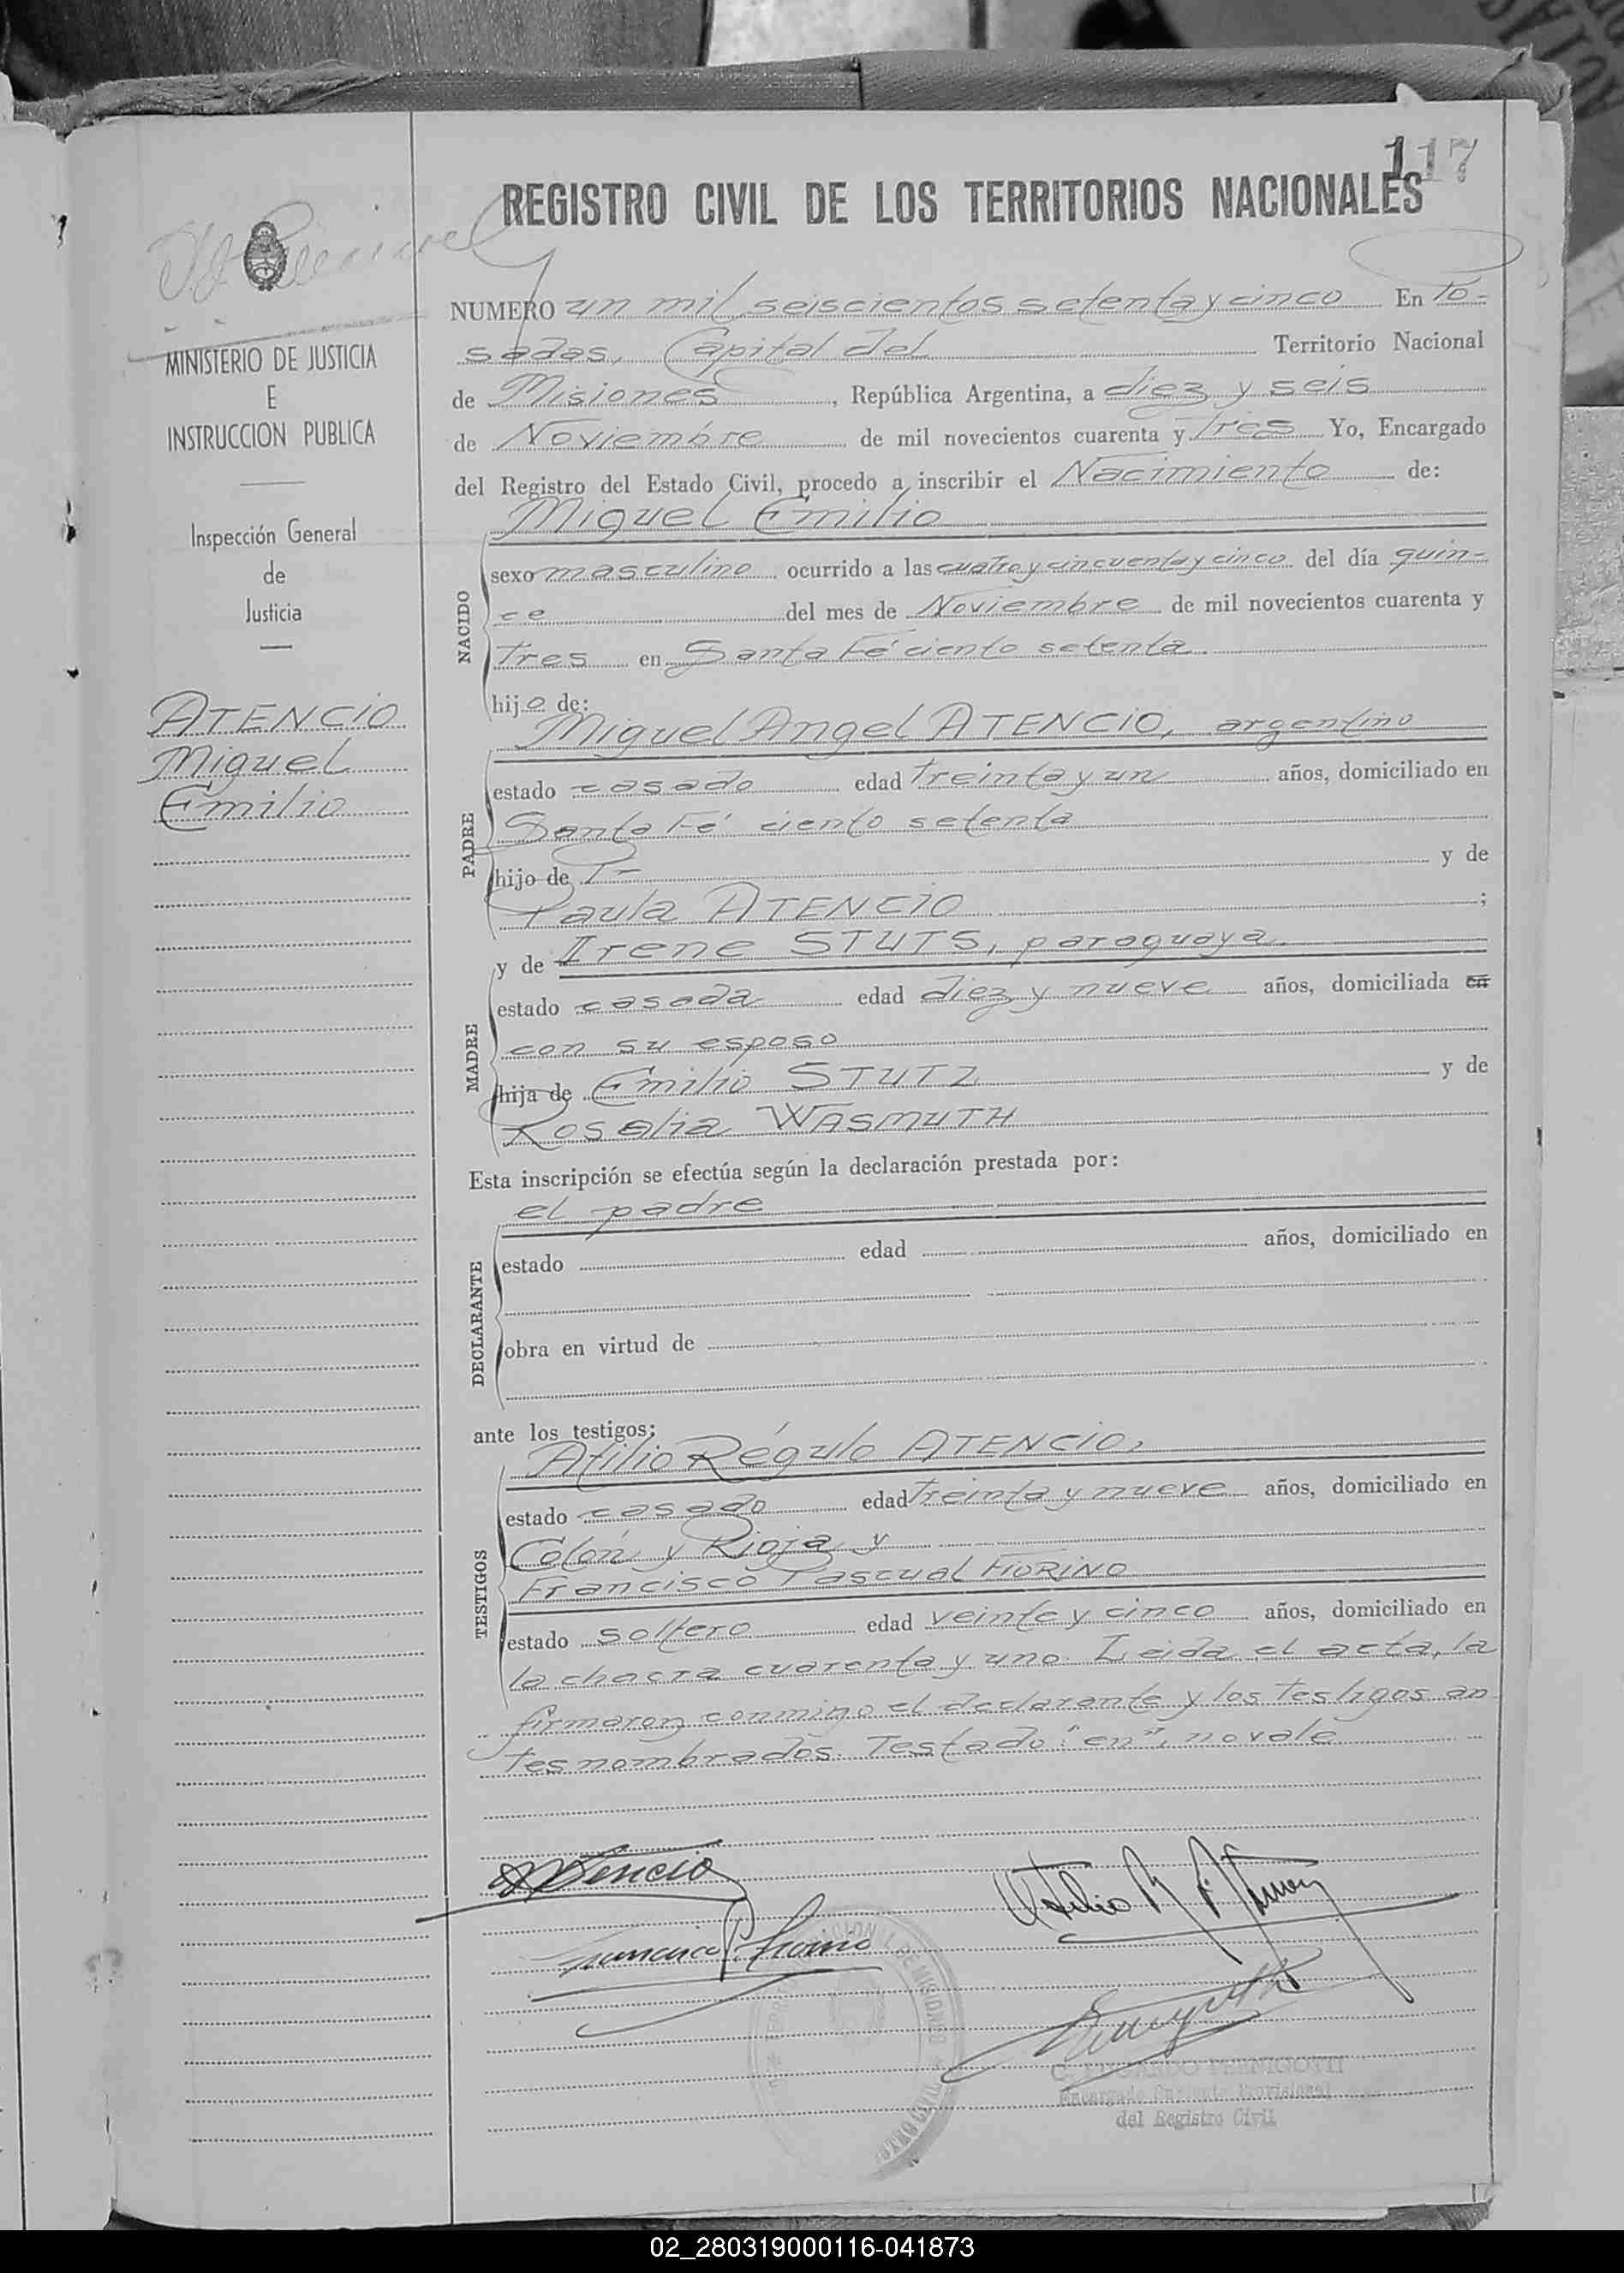 117
REGISTRO CIVIL DE LOS TERRITORIOS NACIONALES
MINISTERIO DE JUSTICIA
E
INSTRUCCION PUBLICA
Inspección General
de
Justicia
ATENCIO
Miguel
Emilio
NUMERO un mil seiscientos setenta y cinco En Po-
sadas, Capital del Territorio Nacional
de Misiones, República Argentina, a diez y seis
de Noviembre de mil novecientos cuarenta y tres Yo, Encargado
del Registro del Estado Civil, procedo a inscribir el Nacimiento de:
Miguel Emilio
NACIDO
sexo masculino ocurrido a las cuatro y cincuenta y cinco del día quin-
ce del mes de Noviembre de mil novecientos cuarenta y
tres en Santa Fé ciento setenta.
hijo de:
Miguel Angel ATENCIO, argentino
PADRE
estado casado edad treinta y un años, domiciliado en
Santa Fé ciento setenta
hijo de y de
Paula ATENCIO ;
y de Irene STUTS, paraguaya.
MADRE
estado casada edad diez y nueve años, domiciliada en
con su esposo
hija de Emilio STUTZ y de
Rosalia WASMUTH
Esta inscripción se efectúa según la declaración prestada por:
el padre
DECLARANTE
estado edad años, domiciliado en
obra en virtud de
ante los testigos:
Atilio Régulo ATENCIO,
TESTIGOS
estado casado edad treinta y nueve años, domiciliado en
Colón y Rioja y
Francisco Pascual FIORINO
estado soltero edad veinte y cinco años, domiciliado en
la chacra cuarenta y uno. Leida el acta, la
firmaron conmigo el declarante y los testigos an
tes nombrados. Testado: "en", no vale
Atencio
Atilio R. Atencio
Francisco P. Fiorino
del Registro Civil
02_280319000116-041873